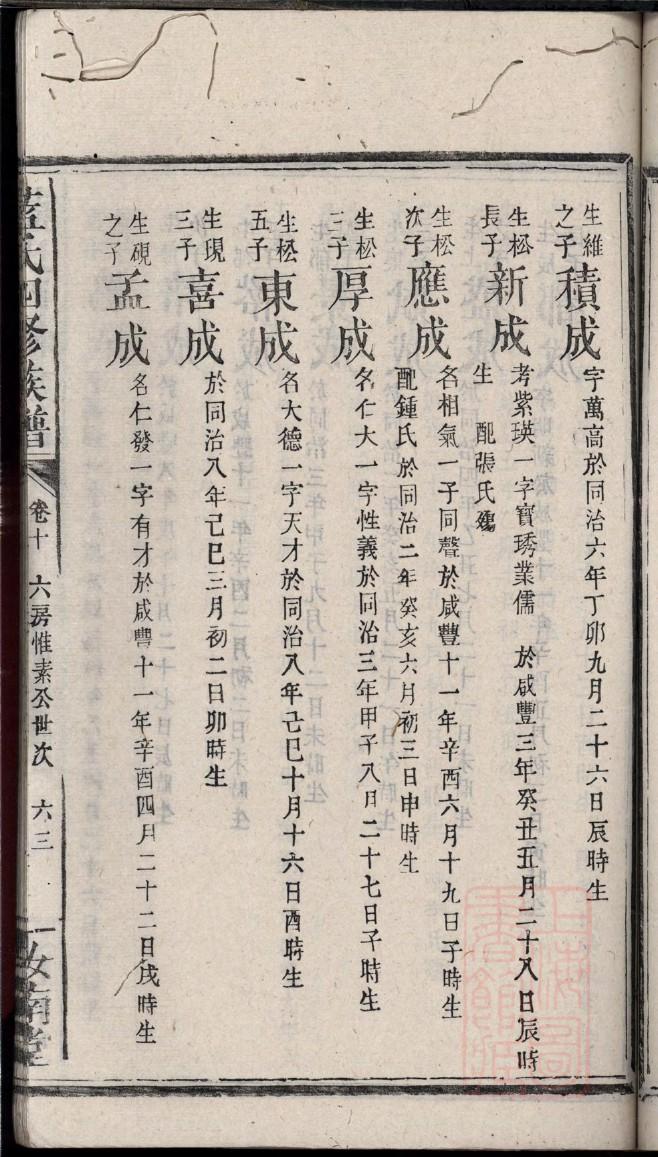 生維之子 積成 字萬高於同治六年丁卯九月二十六日辰時生
生松長子 新成 考紫瑛一字寶琇業儒 於咸豐三年癸丑五月二十八日辰時
生 配張氏殤
生松次子 應成 名相氣一子同聲於咸豐十一年辛酉六月十九日子時生
配鍾氏於同治二年癸亥六月初三日申時生
生松三子 厚成 名仁大一字性義於同治三年甲子八月二十七日子時生
生松五子 東成 名大德一字天才於同治八年己巳十月十六日酉時生
生現三子 喜成 於同治八年己巳三月初二日卯時生
生硯之子 孟成 名仁發一字有才於咸豐十一年辛酉四月二十二日戌時生
氏四修族譜 卷十 六房惟素公世次 六三 汝南堂